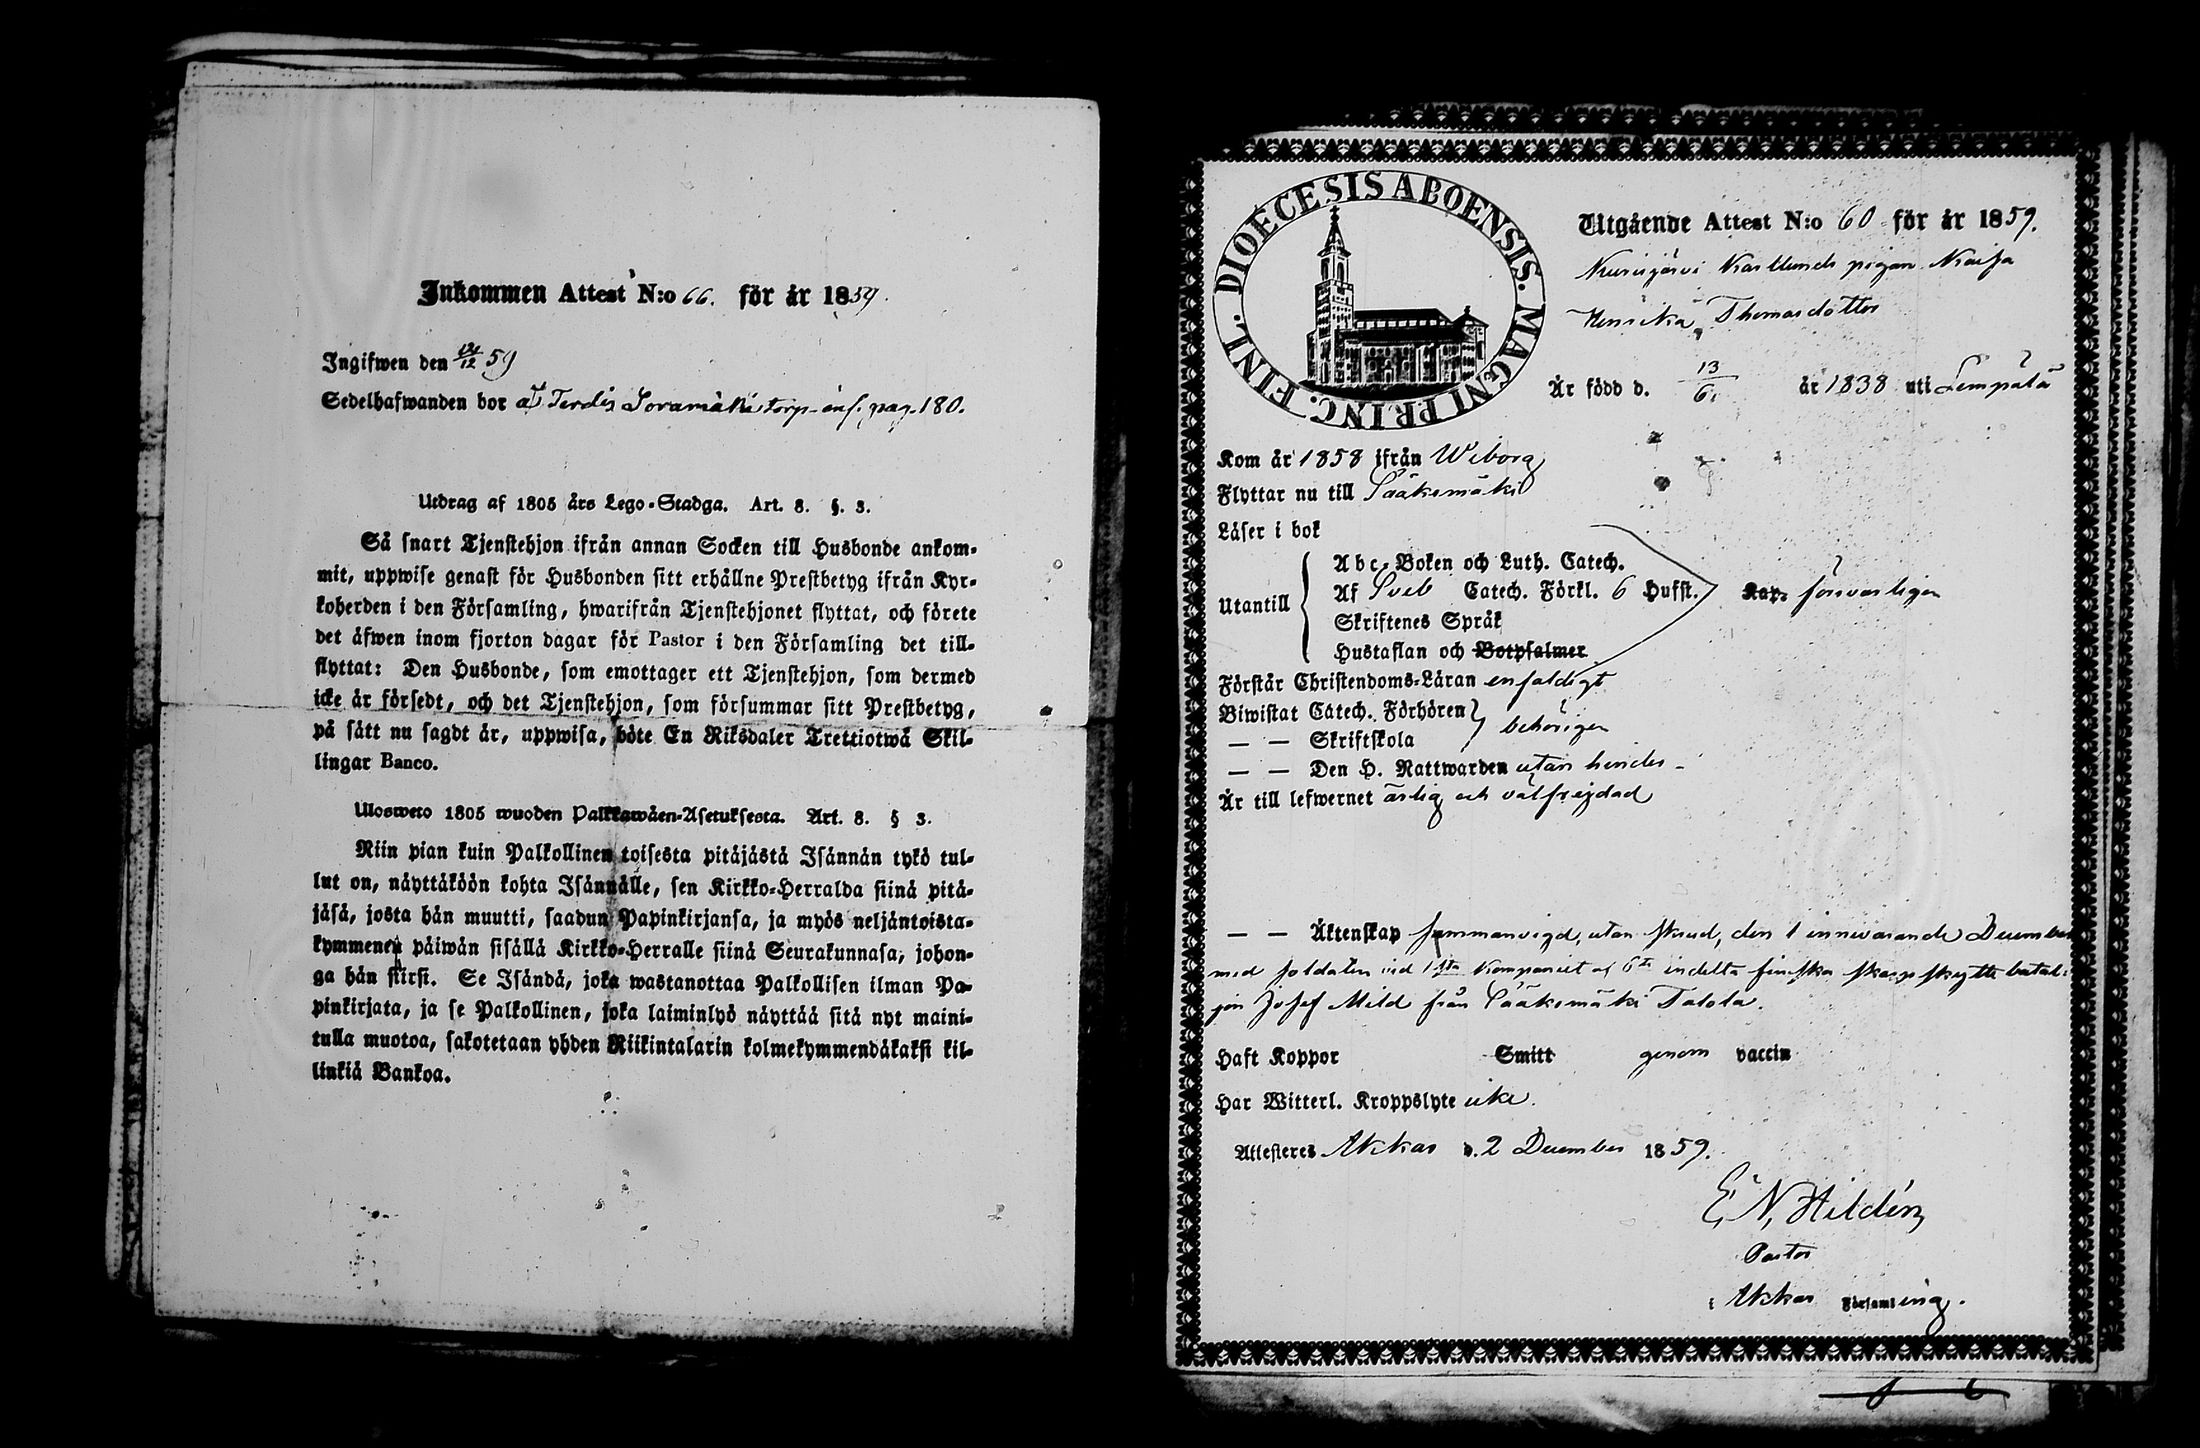 Inkommen Attest N:o 66. för år 1859.
Ingifwen den 12/12 59
Sedelhafwanden bor at Terdis Soramäki torp- inf. pag. 180.
Utdrag af 1805 års Lego-Stadga. Art. 8. §. 3.
Så snart Tjenstehjon ifrån annan Socken till Husbonde ankom-
mit, uppwise genast för Husbonden sitt erhållne Prestbetyg ifrån Kyr-
koherden i den Församling, hwarifrån Tjenstehjonet flyttat, och förete
det äfwen inom fjorton dagar för Pastor i den Församling det till-
flyttat: Den Husbonde, som emottager ett Tjenstehjon, som dermed
icke är försedt, och det Tjenstehjon, som försummar sitt Prestbetyg,
på sätt nu sagdt är, uppwisa, böte En Riksdaler Trettiotwå Skil-
lingar Banco.
Uloswеto 1805 wuoden Palkkawäen-Asetuksesta. Art. 8. § 3.
Niin pian kuin Palkollinen toisesta pitäjästä Isännän tykö tul-
lut on, näyttäköön kohta Isännälle, sen Kirkko-Herralda siinä pitä-
jäsä, josta hän muutti, saadun Papinkirjansa, ja myös neljäntoista-
kymmenen päiwän sisällä Kirkko-Herralle siinä Seurakunnasa, johon-
ga hän siirsi. Se Isändä, joka wastanottaa Palkollisen ilman Pa-
pinkirjata, ja se Palkollinen, joka laiminlyö näyttää sitä nyt maini-
tulla muotoa, sakotetaan yhden Riikintalarin kolmekymmendäkaksi kil-
linkiä Bankoa.
DIOECESIS ABOENSIS. MAGNI PRINC. FINL.
Utgående Attest N:o 60 för år 1859.
Kurisjärvi Karlunds pigan Kaisa
Henrika Thomasdotter
Är född d. 13/6. år 1838 uti Lempälä
Kom år 1858 ifrån Wiborg
Flyttar nu till Sääksmäki
Läser i bok
Utantill
Abc-Boken och Luth. Catech.
Af Sveb Catech. Förkl. 6 Hufst. Kap. försvarligen
Skriftenes Språk
Hustaflan och Botpsalmer
Förstår Christendoms-Läran enfaldigt
Biwistat Catech. Förhören
— — Skriftskola behörigen
— — Den H. Nattwarden utan hinder
Är till lefwernet ärlig och välfrejdad
— — Äktenskap sammanvigd, utan skrud, den 1 innevarande December
med soldaten vid 1sta Kompaniet af 6te indelta finska skarpskytte batal-
jon Josef Mild från Sääksmäki Talola.
Haft Koppor Smitt genom vaccin
Har Witterl. Kroppslyte icke.
Attesteres Akkas d. 2 December 1859.
E. N. Hildén
Pastor
i Akkas Församling.